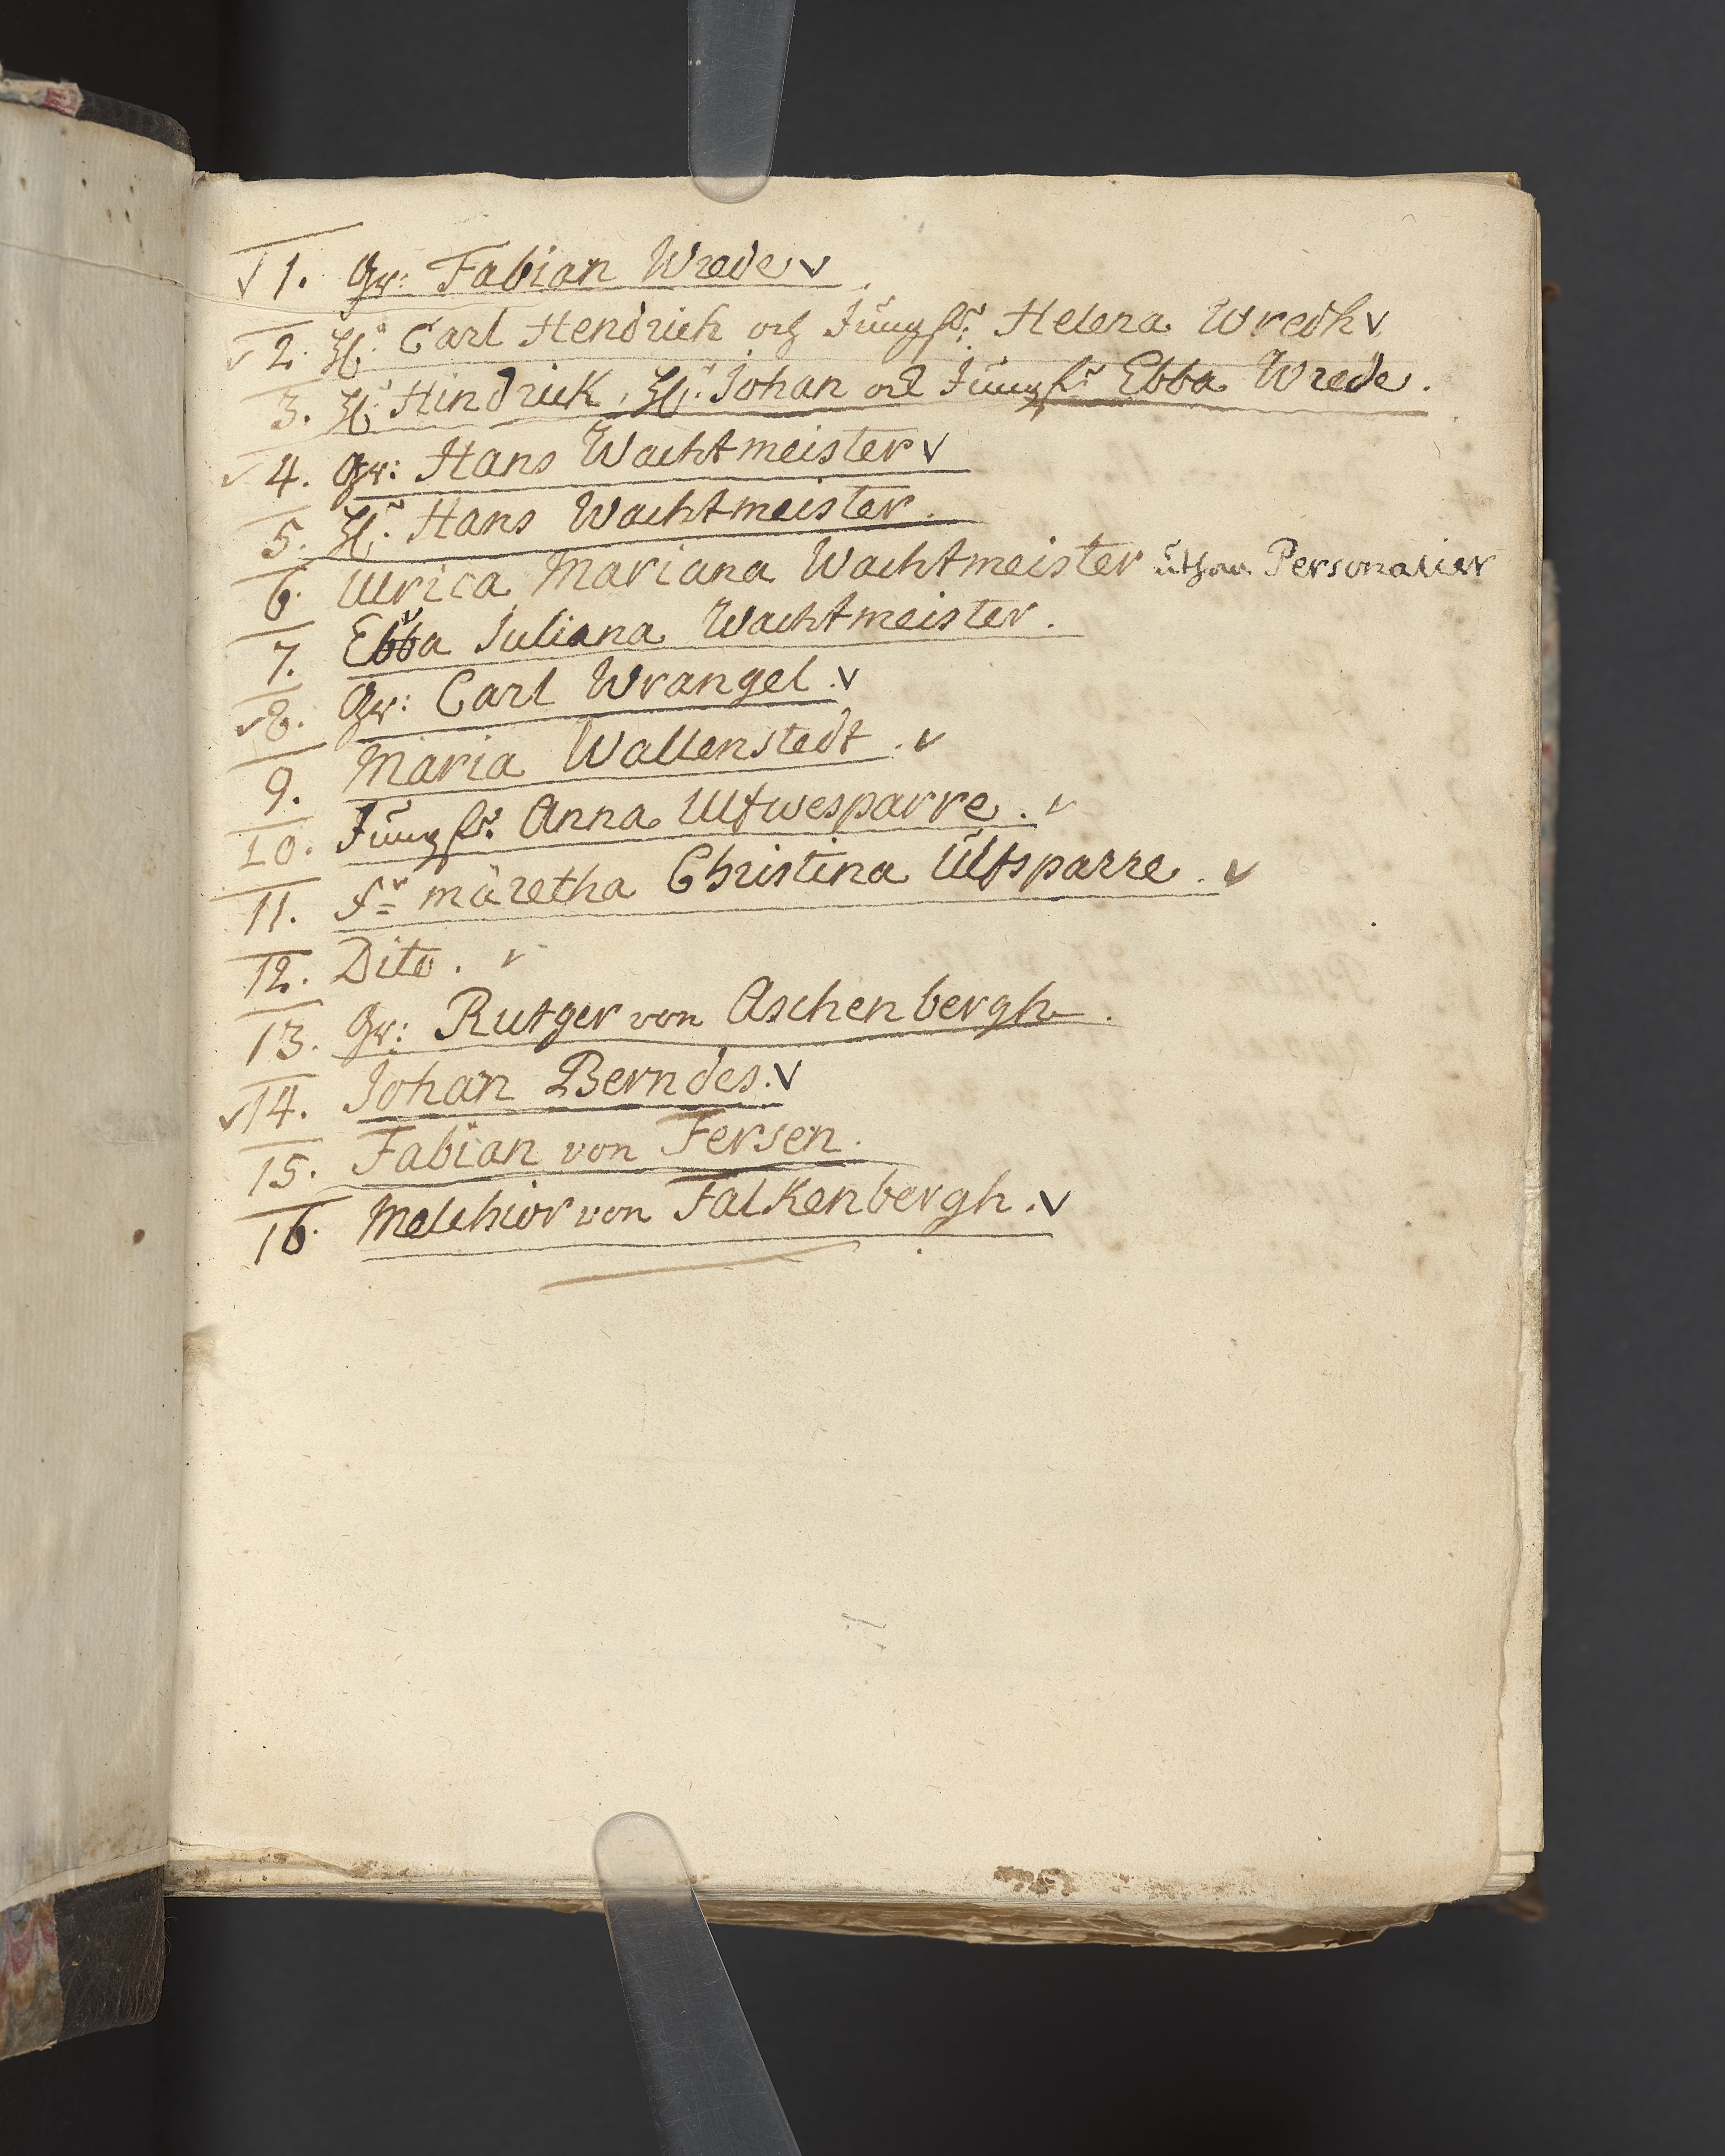 √ 1. Gr: Fabian Wrede √
√ 2. H:r Carl Hendrich och Jungfr: Helena Wredh √
3. H:r Hindrick, H:r Johan och Jungfr Ebba Wrede.
√ 4. Gr: Hans Wachtmeister √
5. H:r Hans Wachtmeister.
6. Ulrica Mariana Wachtmeister uthan Personalier
7. Ebba Juliana Wachtmeister.
√ 8. Gr: Carl Wrangel. √
9. Maria Wallenstedt. √
10. Jungfr: Anna Ulfwesparre. √
11. fr märetha Christina Ulfsparre. √
12. Dito. √
13. Gr: Rutger von Aschenbergh.
√ 14. Johan Berndes. √
15. Fabian von Fersen.
16. Melchior von Falkenbergh. √